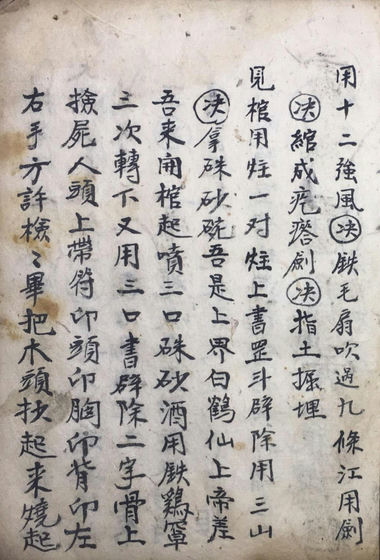 用十二強風決鉄毛扇吹過九條江用劍
決綰成疤瘩劍決指土掘埋
見棺用炷一对炷上書罡斗辟除用三山
決拿硃砂碗吾是上界白鶴仙上帝差
吾来開棺起噴三口硃砂酒用鉄鷄罩
三次轉下又用三口書辟除二字骨上
撿屍人頭上帶符印頭印胸印背印左
右手方許檢〻畢把木頭抄起来燒起